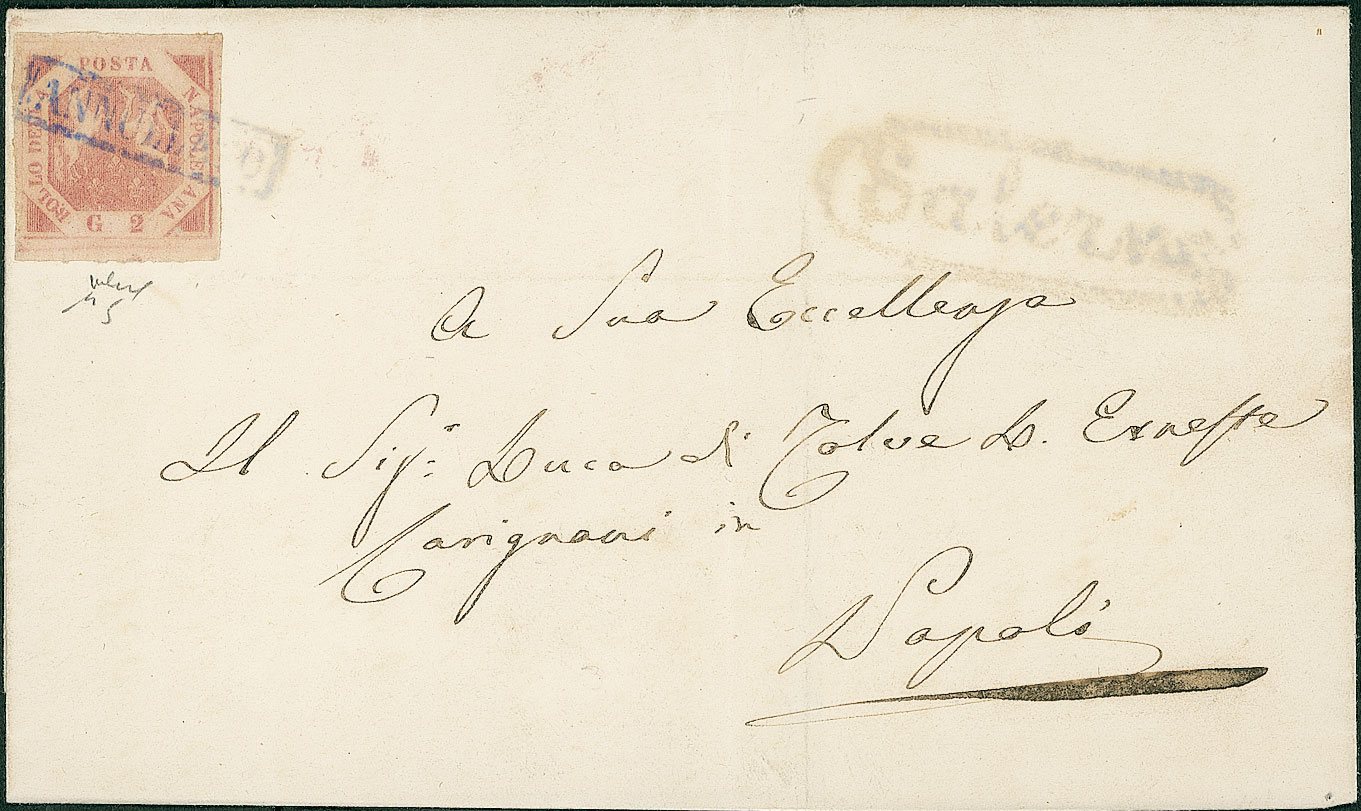 POSTA
NAPOLETANA
BOLLO DELLA
G 2
ANNULLATO
A Sua Eccellenza
Il Sig.r Duca di Tolve D. Ernesto
Carignani in
Napoli